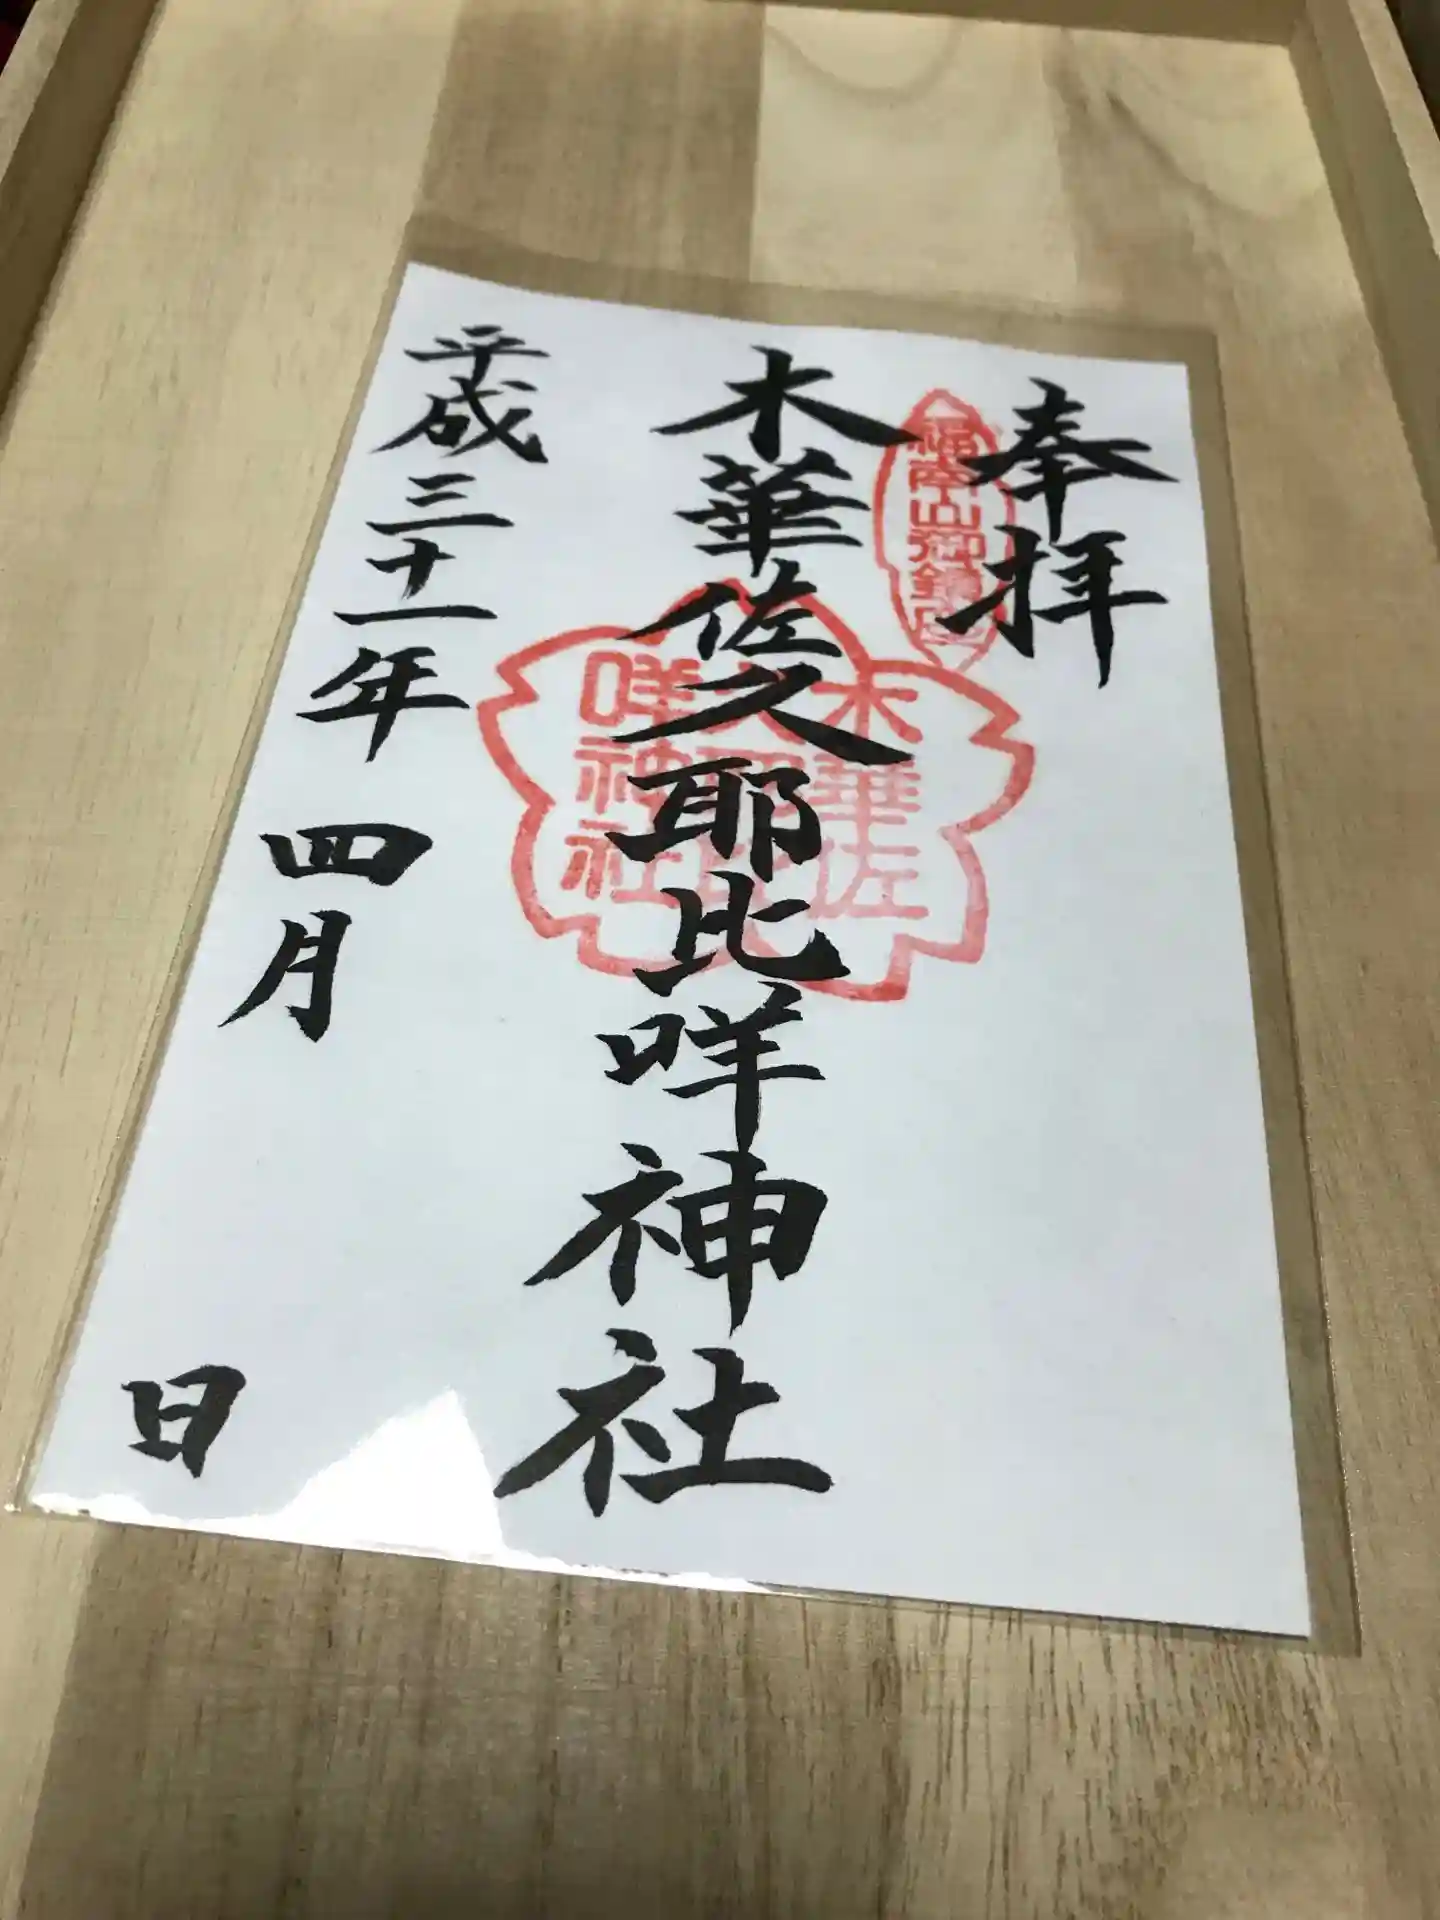 奉拝
福南山御鎮座
木華佐久耶比咩神社
木華佐
久耶比
咩神社
平成三十一年 四月 日